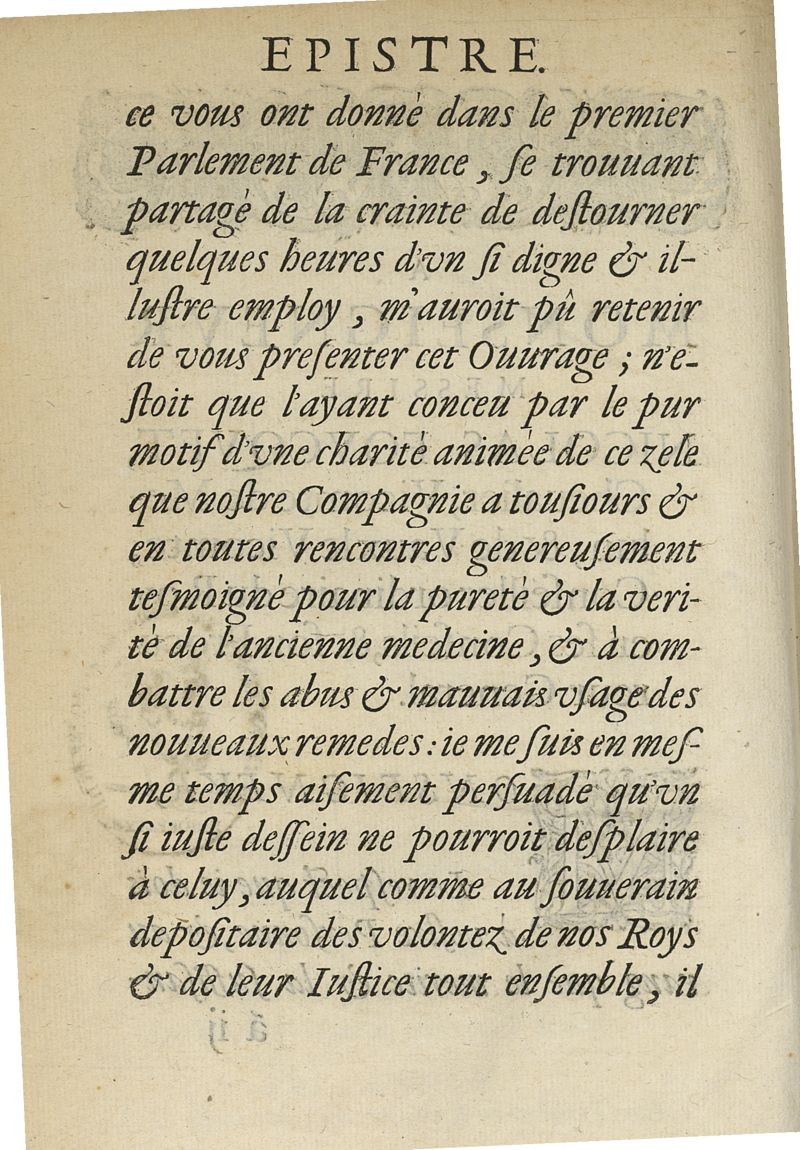 EPISTRE.
ce vous ont donné dans le premier
Parlement de France, ſe trouuant
partagé de la crainte de deſtourner
quelques heures d'vn ſi digne & il-
luſtre employ, m'auroit pû retenir
de vous preſenter cet Ouurage; n'e-
ſtoit que l'ayant conceu par le pur
motif d'vne charité animée de ce zele
que noſtre Compagnie a touſiours &
en toutes rencontres genereuſement
teſmoigné pour la pureté & la veri-
té de l'ancienne medecine, & à com-
battre les abus & mauuais vſage des
nouueaux remedes: ie me ſuis en meſ-
me temps aiſement perſuadé qu'vn
ſi iuſte deſſein ne pourroit deſplaire
à celuy, auquel comme au ſouuerain
depoſitaire des volontez de nos Roys
& de leur Iuſtice tout enſemble, il